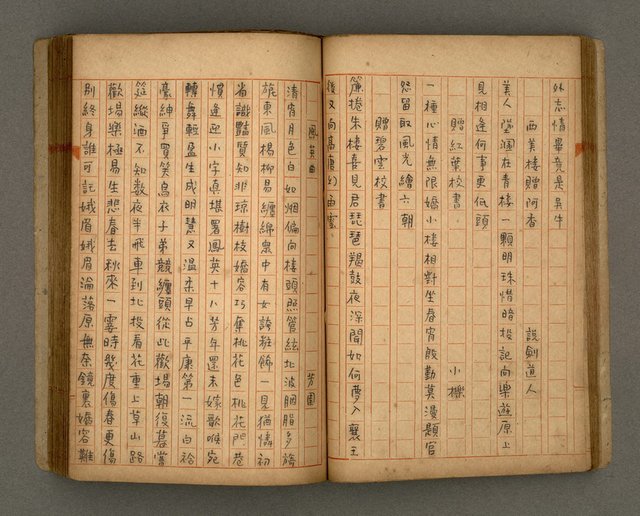 外志情畢竟是吳牛
西美樓贈阿香 說劍道人
美人墜溷在青樓一顆明珠惜暗投記向樂遊原上
見相逢何事更低頭
贈紅葉校書 小樵
一種心情無限嬌小樓相對坐春宵殷勤莫漫題宮
怨留取風光繪六朝
贈碧雲校書
簾捲朱樓喜見君琵琶羯鼓夜深聞如何夢入襄王
後又向高唐幻曲雲
鳳英曲 芳園
清宵月色白如烟偏向樓頭照管絃北波胭脂多旖
旎東風楊柳易纏綿眾中有女誇班餙一見猶憐初
省識豔質知非瓊樹枝嬌容巧奪桃花色桃花門巷
慣逢迎小字真堪署鳳英十八芳年還未嫁歌喉宛
轉舞輕盈生成明慧又溫柔早占平康第一流白袷
豪紳爭買笑烏衣子弟競纏頭從此歡場朝復暮當
筵縱酒不知數夜半飛車到北投看花重上草山路
歡場樂極易生悲春去秋來一霎時幾度傷春更傷
別終身誰可託娥眉娥眉淪落原無奈鏡裏嬌容難